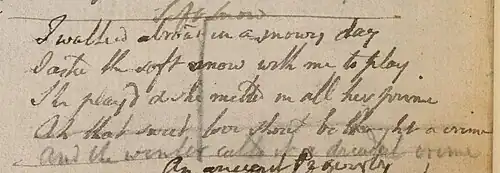 Soft Snow
I walked abroad in a snowy day
I askd the soft snow with me to play
She playd & she melted in all her prime
Ah that sweet love should be thought a crime
and the winter calld it a dreadful crime
An ancient Proverb